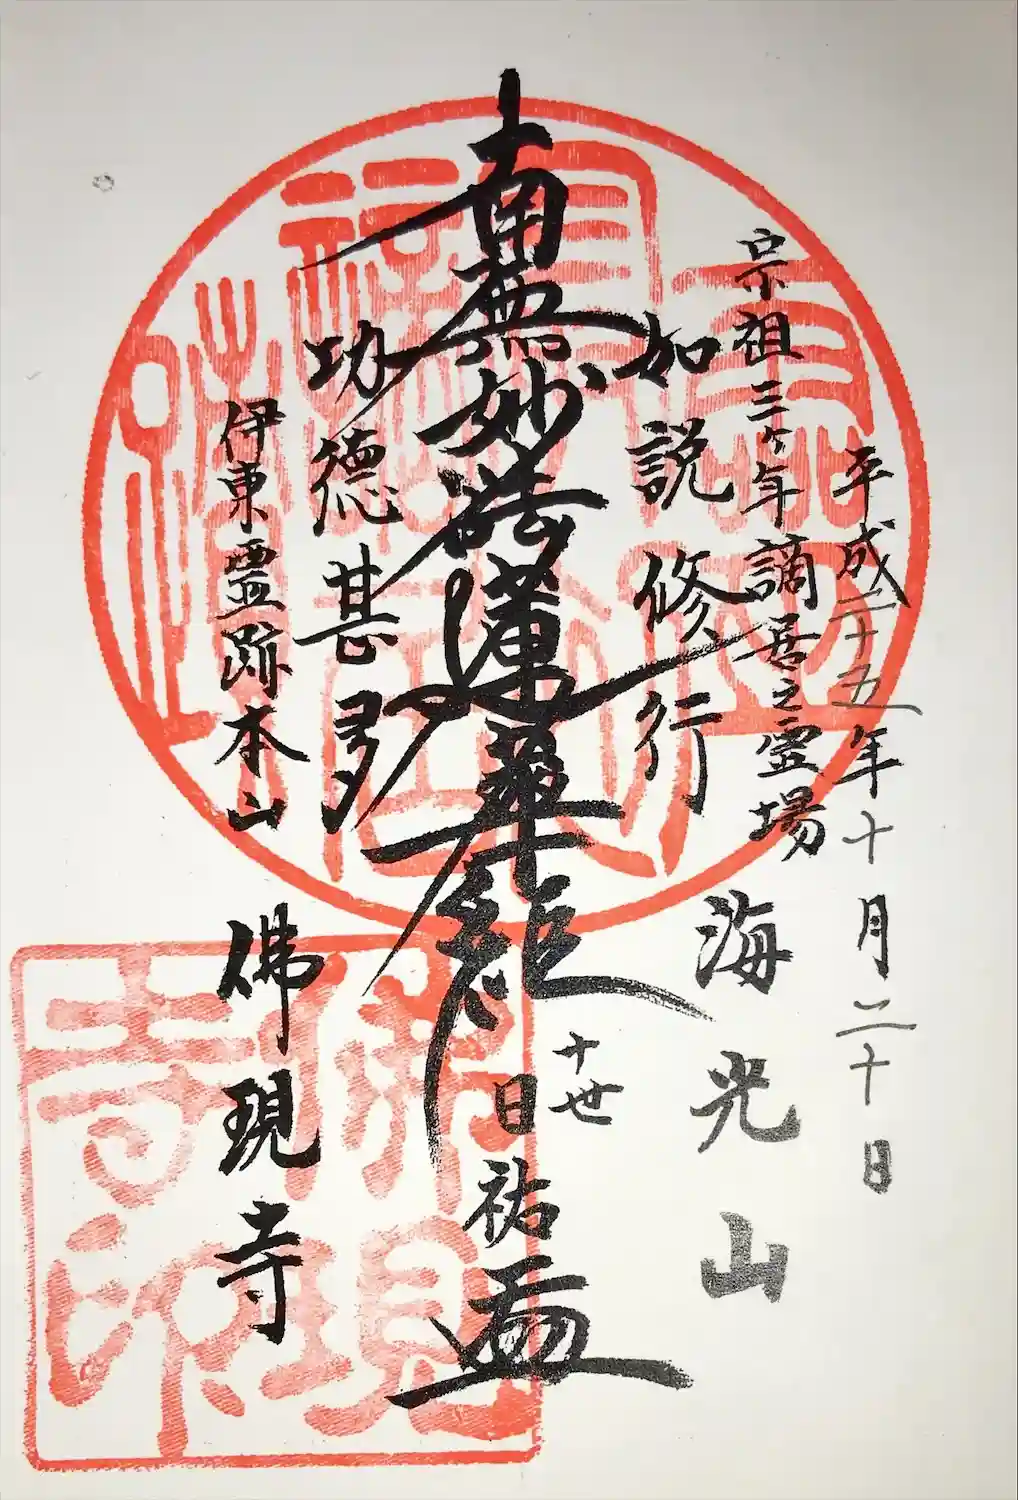 平成二十五年十月二十日
宗祖三ヶ年謫居之霊場
海光山
如説修行
南無妙法蓮華経
十世
日祐
功徳甚多
伊東霊跡本山
佛現寺
佛現
寺印